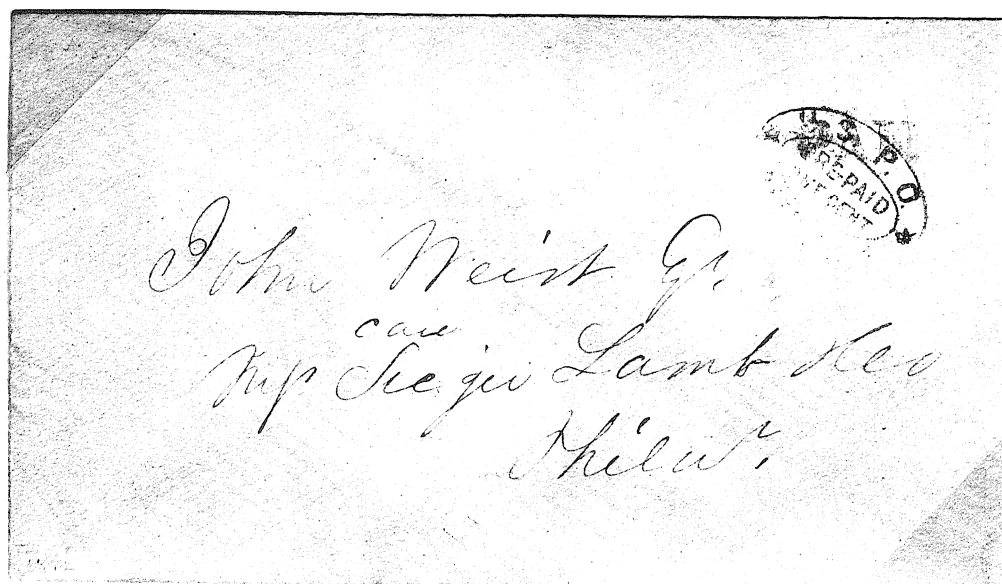 U. S. P. O.
PRE-PAID
ONE CENT
John Weist
care
Sieger Lamb & Co
Phila.